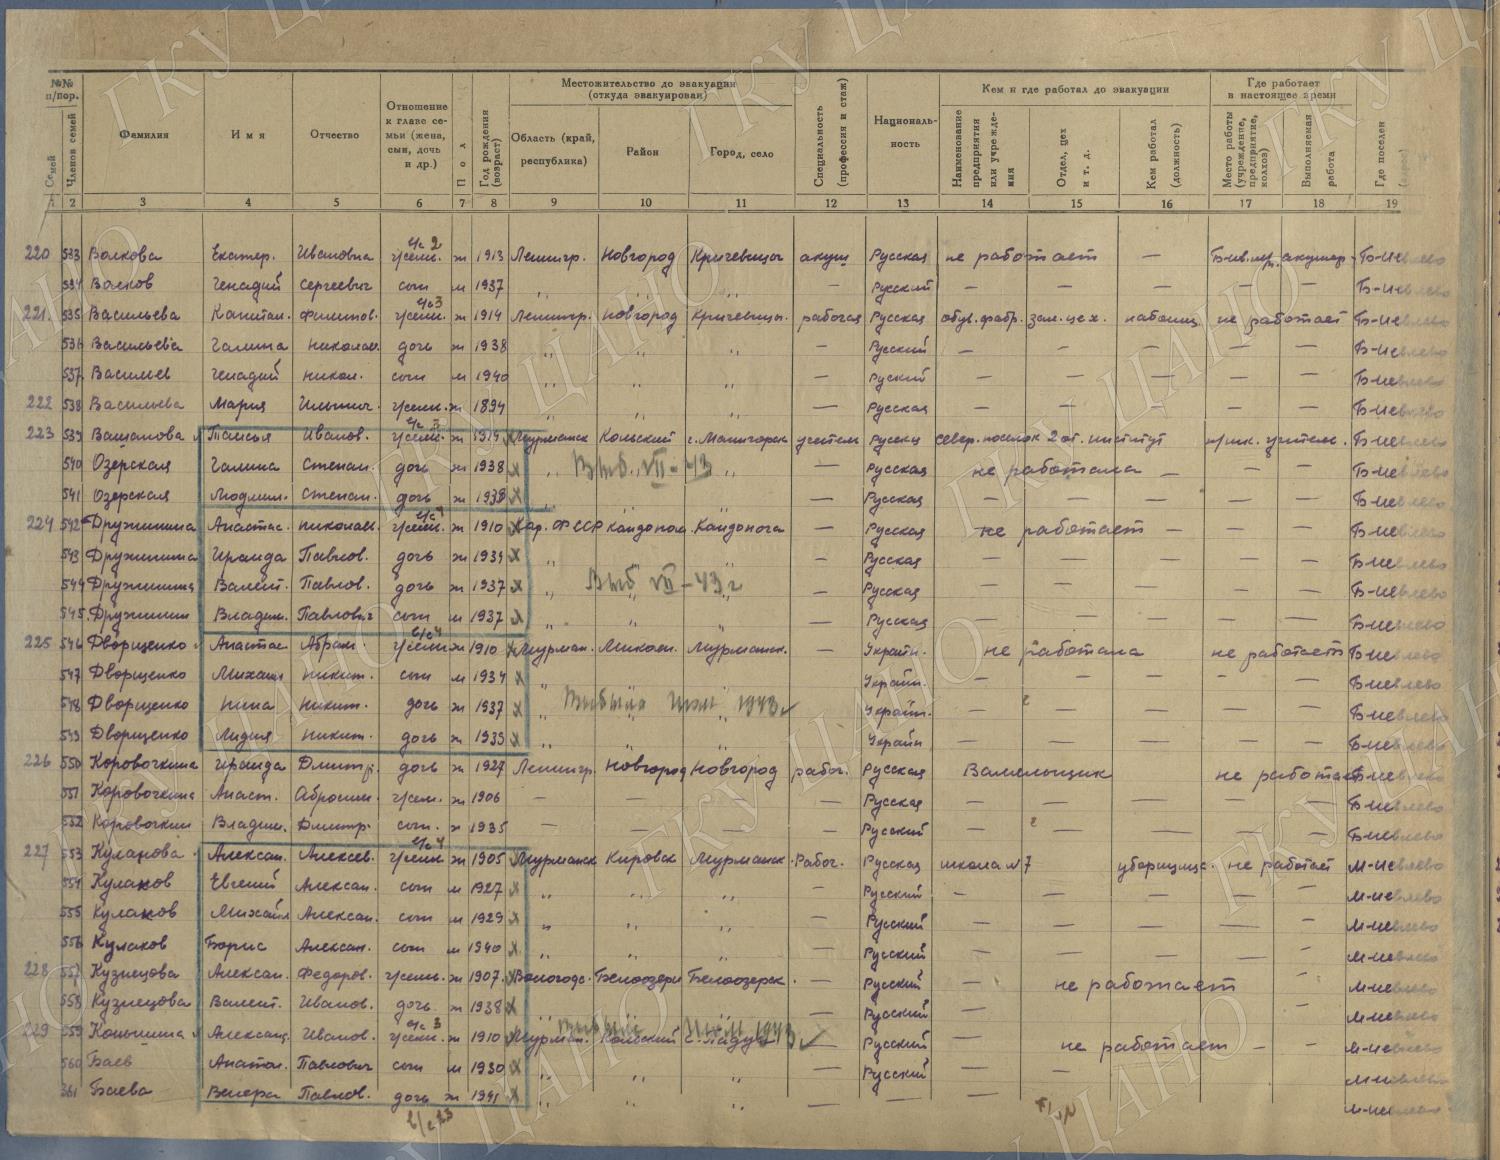 №№ п/пор.
Семей
Членов семей
Фамилия
Имя
Отчество
Отношение к главе семьи (жена, сын, дочь и др.)
Пол
Год рождения (возраст)
Местожительство до эвакуации (откуда эвакуирован)
Область (край, республика)
Район
Город, село
Специальность (профессия и стаж)
Национальность
Кем и где работал до эвакуации
Наименование предприятия или учреждения
Отдел, цех и т. д.
Кем работал (должность)
Где работает в настоящее время
Место работы (учреждение, предприятие, колхоз)
Выполняемая работа
Где поселен (адрес)
1 2 3 4 5 6 7 8 9 10 11 12 13 14 15 16 17 18 19
220 533 Волкова Екатер. Ивановна г/сем. ж 1913 Ленингр. Новгород Кричевицы акуш Русская не работает — акушер Б-Иевлево
534 Волков Генадий Сергеевич сын м 1937 „ „ „ — Русский — — — — — Б-Иевлево
221. 535 Васильева Капитал. Филипов. г/сем. ж 1914 Ленингр. Новгород Кричевицы. рабочая Русская обув. фабр. зам. цех. не работает Б-Иевлево
536 Васильева Галина Николав. дочь ж 1938 „ „ „ — Русский — — — — — Б-Иевлево
537. Васильев Генадий Никол. сын м 1940 „ „ „ — Руский — — — — — Б-Иевлево
222 538 Васильева Мария Ильинич. г/сем. ж 1894 „ „ „ — Русская — — — — — Б-Иевлево
223 539 Ваганова Таисья Иванов. г/сем. ж 1914 х Мурманск Кольский г. Мончегорск учител Русска север. поселок 2от. институт учител. Б-Иевлево
540 Озерская Галина Степан. дочь ж 1938 х „ Выб. VII-43 „ — Русская не работала — — — Б-Иевлево
541 Озерская Людмил. Степан. дочь ж 1938 х — Русская — — — — — Б-Иевлево
224 542 Дружинина Анастас. Николаев. г/сем. ж 1910 х Кар. ФССР Кондопож Кондопога — Русская не работает — — — Б-Иевлево
543 Дружинина Ираида Павлов. дочь ж 1934 х „ — Русская — — — — — Б-Иевлево
544 Дружинина Валент. Павлов. дочь ж 1937 х „ Выб VII-43 г — Русская — — — — — Б-Иевлево
545. Дружинин Владим. Павлович сын м 1937 х „ „ „ — Русская — — — — — Б-Иевлево
225 546 Дворценко Анастас Абрам. г/сем ж 1910 х Мурман. Микоян. Мурманск. — Украин. не работала не работает Б-Иевлево
547 Дворценко Михаил Никит. сын м 1934 х „ — Украин. — — — — — Б-Иевлево
548 Дворценко Нина Никит. дочь ж 1937 х „ Выбыла Июль 1943 ✓ — Украин. — — — — Б-Иевлево
549 Дворценко Лидия Никит. дочь ж 1939 х „ „ „ — Украин — — — — — Б-Иевлево
226 550 Коровочкина Ираида Дмитр. дочь ж 1927 Ленингр. Новгород Новгород рабоч. Русская Вальщик не работает Б-Иевлево
551 Коровочкина Анаст. Абросим. г/сем. ж 1906 — — — — Русская — — — — — Б-Иевлево
552 Коровочкин Владим. Дмитр. сын. 1935 — — — — Русский — — — — Б-Иевлево
227 553 Кулакова Алексан. Алексев. г/сем. ж 1905 Мурманск Кировск Мурманск. Рабоч. Русская школа №7 уборщица. не работает М-Иевлево
554 Кулаков Евгений Алексан. сын м 1927 х „ „ „ — Русский — — — — — М-Иевлево
555 Кулаков Михайл Алексан. сын м 1929 х „ „ „ — Русский — — — — — М-Иевлево
556 Кулаков Борис Алексан. сын м 1940 х „ „ „ — Русский — — — — — М-Иевлево
228 557 Кузнецова Алексан. Федоров. г/сем. ж 1907. х Вологодс. Белоозерск. — Русский — не работает — М-Иевлево
558 Кузнецова Валент. Иванов. дочь. ж 1938 х „ „ „ — Русский — — М-Иевлево
229 559 Коньшина Александ. Иванов. г/сем. ж 1910 х Мурман. Кольский Выбыла Июль 1943 ✓ — Русский — не работает — — М-Иевлево
560 Баев Анатол. Павлович сын м 1930 х „ „ „ — Русский — — — — — М-Иевлево
561 Баева Венера Павлов. дочь ж 1941 х „ „ „ — — — — — — М-Иевлево
в/с 23
ГКУ ЦАНО